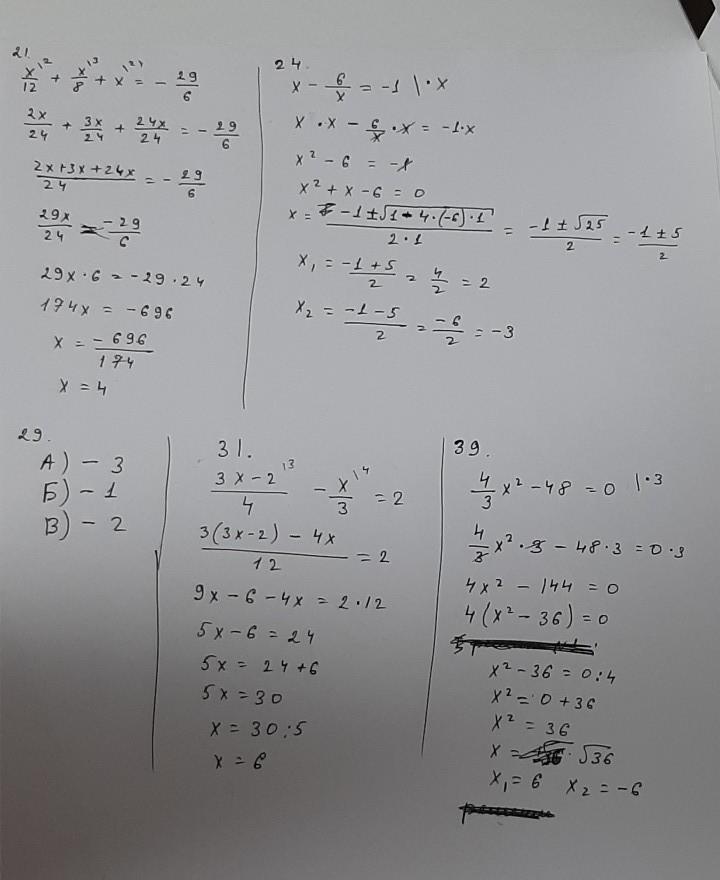 21.
x/12 \2 + x/8 \3 + x \24 = - 29/6
2x/24 + 3x/24 + 24x/24 = - 29/6
2x+3x+24x/24 = - 29/6
29x/24 = -29/6
29x · 6 = -29 · 24
174x = -696
x = -696/174
x = 4
24.
x - 6/x = -1 | · x
x · x - 6/x · x = -1 · x
x² - 6 = -x
x² + x - 6 = 0
x = -1 ± √1 - 4 · (-6) · 1 / 2 · 1 = -1 ± √25 / 2 = -1 ± 5 / 2
x₁ = -1 + 5 / 2 = 4/2 = 2
x₂ = -1 - 5 / 2 = -6/2 = -3
29.
А) - 3
Б) - 1
В) - 2
31.
3x-2/4 \3 - x/3 \4 = 2
3(3x-2) - 4x / 12 = 2
9x - 6 - 4x = 2 · 12
5x - 6 = 24
5x = 24 + 6
5x = 30
x = 30 : 5
x = 6
39.
4/3 x² - 48 = 0 | · 3
4/3 x² · 3 - 48 · 3 = 0 · 3
4x² - 144 = 0
4(x² - 36) = 0
x² - 36 = 0 : 4
x² = 0 + 36
x² = 36
x = √36
x₁ = 6 x₂ = -6